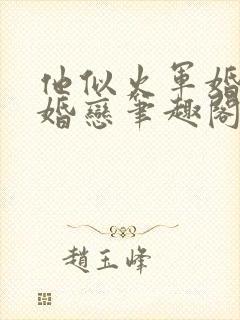 他似火軍婚
婚戀筆趣閣
趙玉峰